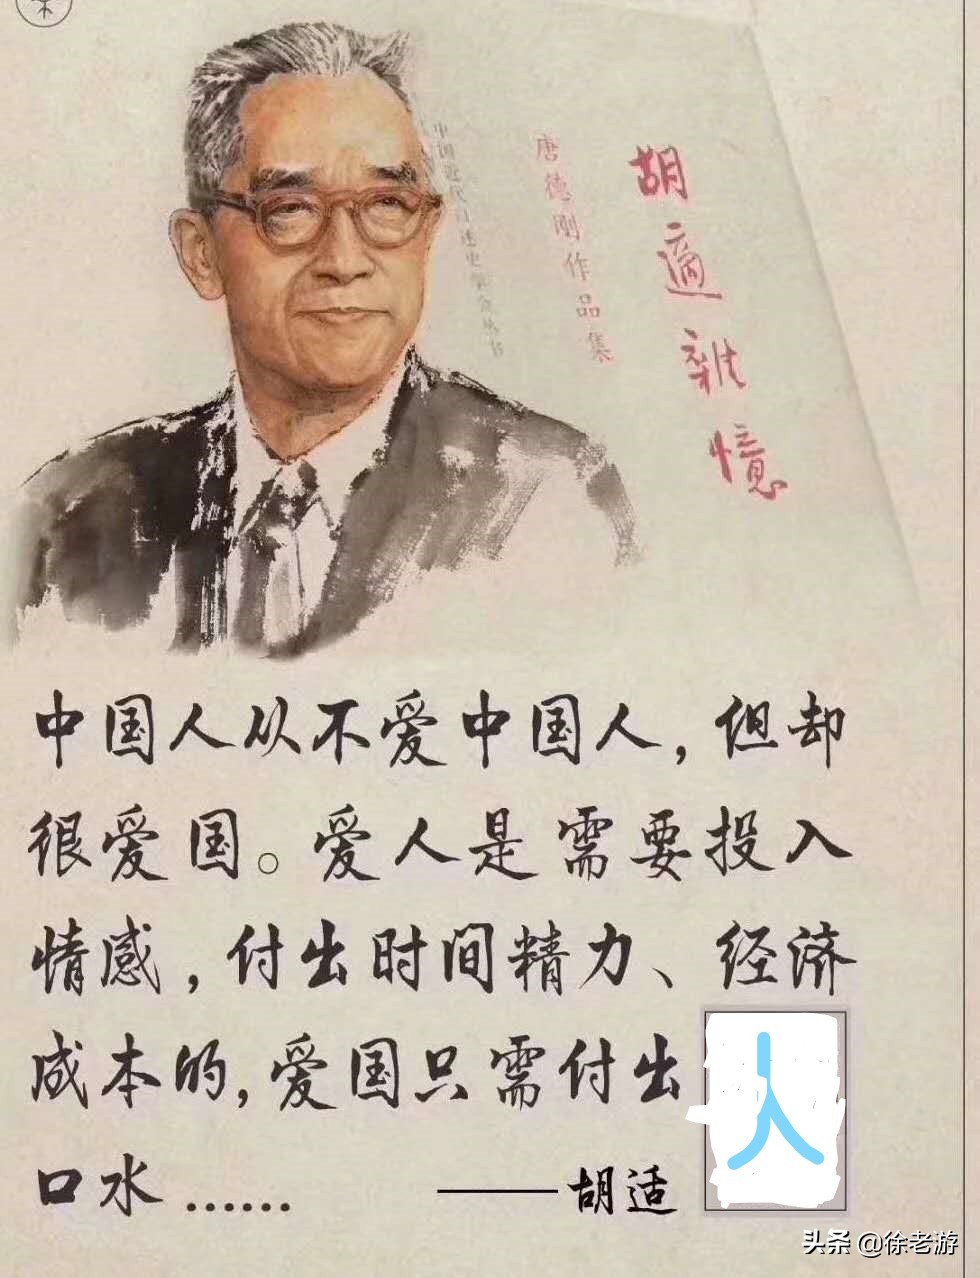 胡適雜憶
唐德刚作品集
中国近代口述史学会丛书
中国人从不爱中国人，但却
很爱国。爱人是需要投入
情感，付出时间精力、经济
成本的，爱国只需付出
口水……
——胡适
人
头条 @徐老游